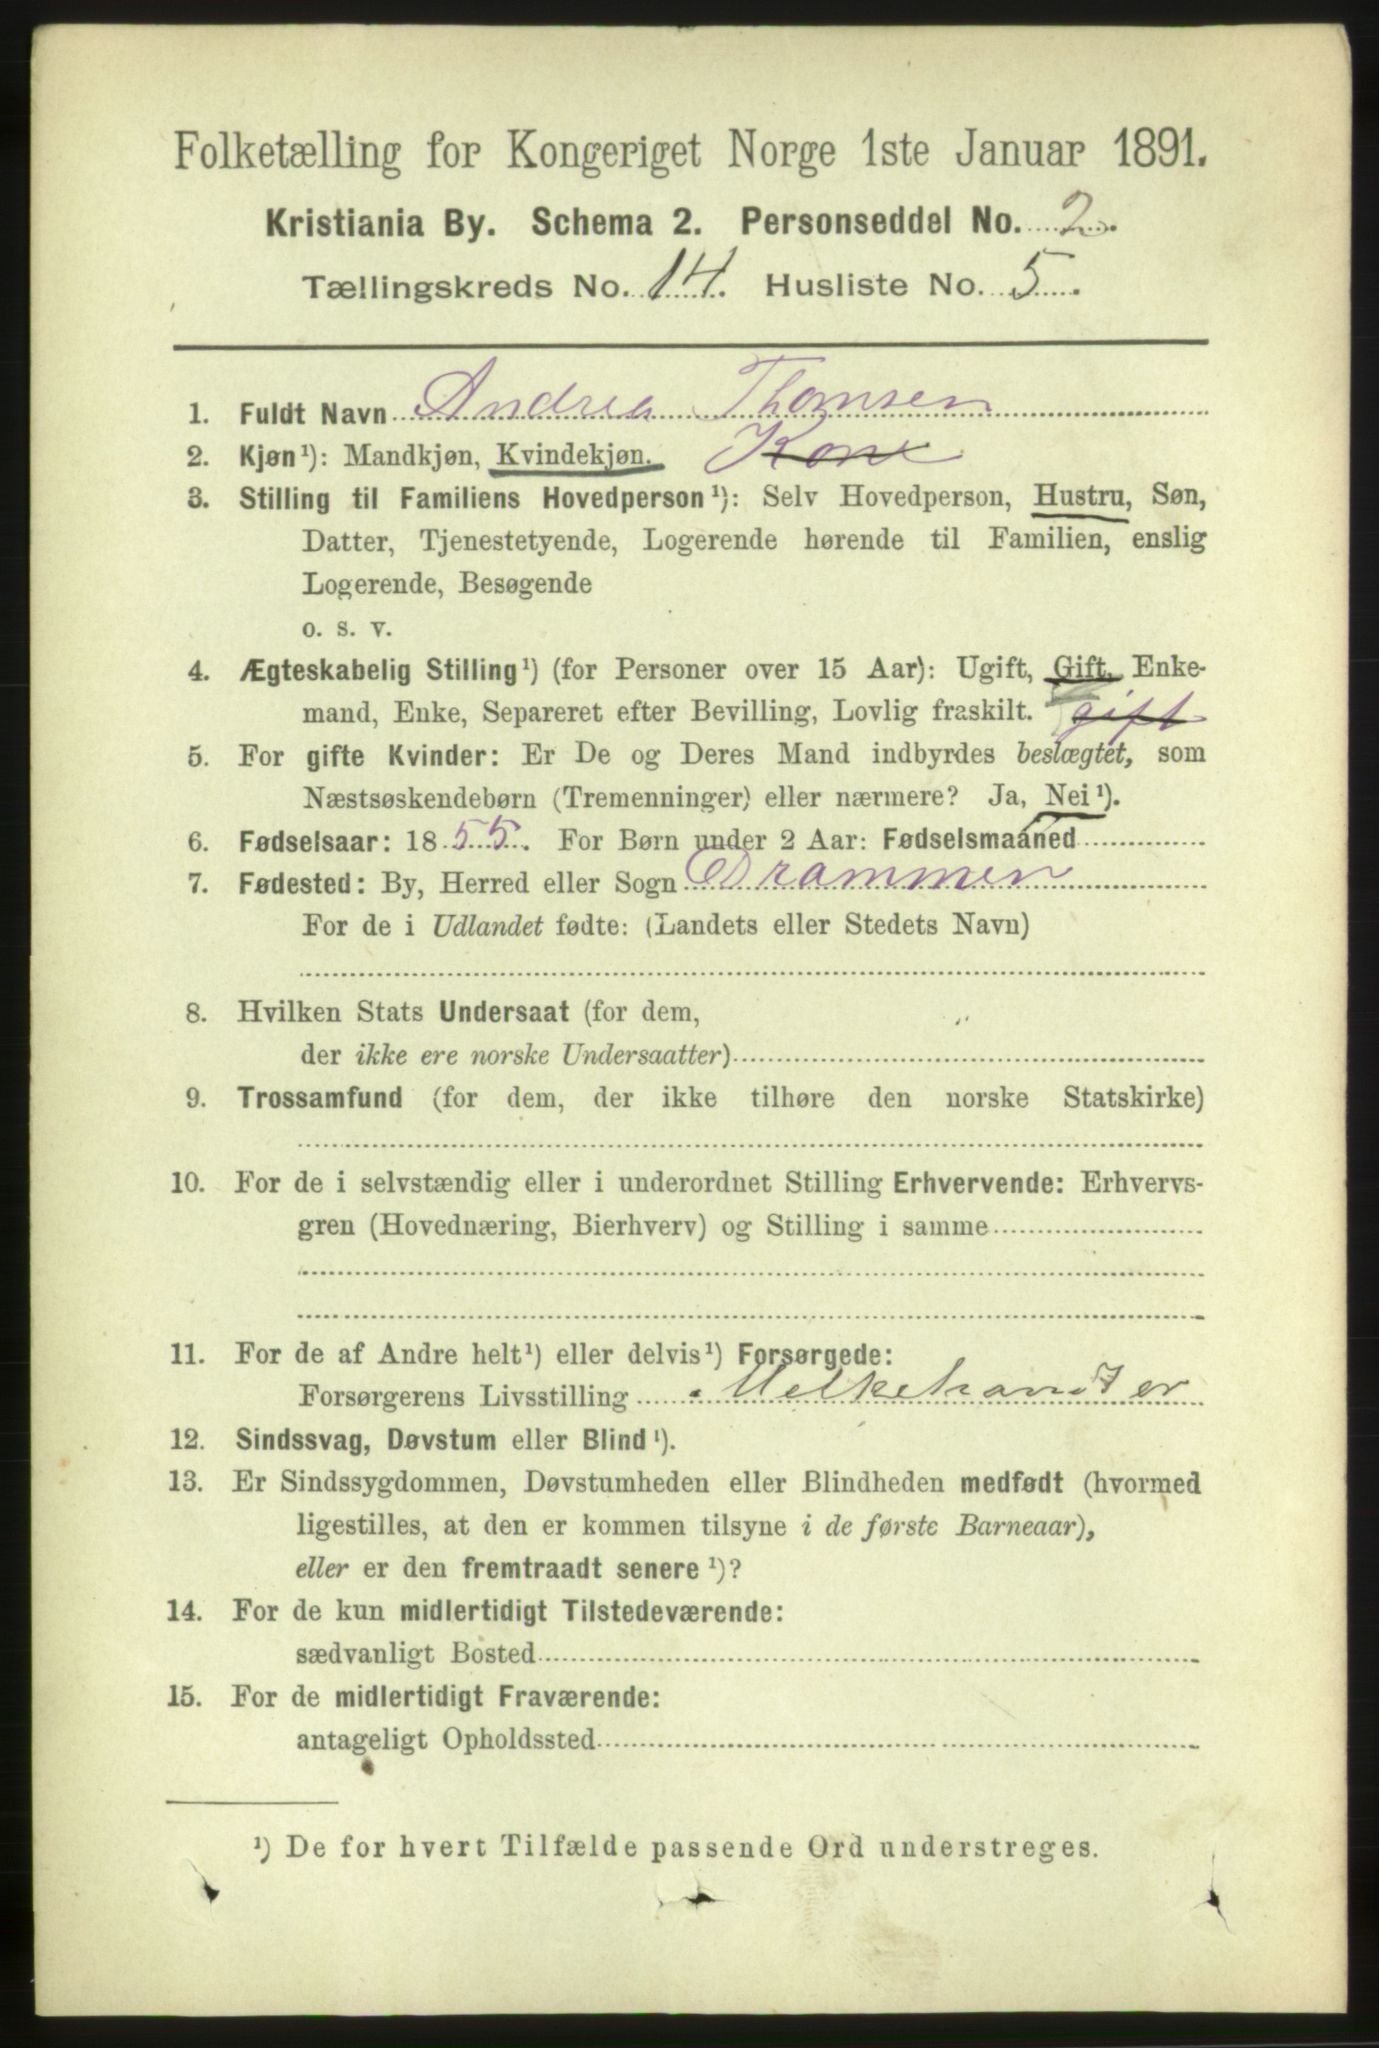 Folketælling for Kongeriget Norge 1ste Januar 1891.
Kristiania By. Schema 2. Personseddel No. 2.
Tællingskreds No. 14. Husliste No. 5.
1. Fuldt Navn Andrea Thomsen
2. Kjøn¹): Mandkjøn, Kvindekjøn. Kone
3. Stilling til Familiens Hovedperson¹): Selv Hovedperson, Hustru, Søn,
Datter, Tjenestetyende, Logerende hørende til Familien, enslig
Logerende, Besøgende
o. s. v.
4. Ægteskabelig Stilling¹) (for Personer over 15 Aar): Ugift, Gift, Enke-
mand, Enke, Separeret efter Bevilling, Lovlig fraskilt. gift
5. For gifte Kvinder: Er De og Deres Mand indbyrdes beslægtet, som
Næstsøskendebørn (Tremenninger) eller nærmere? Ja, Nei¹).
6. Fødselsaar: 1855. For Børn under 2 Aar: Fødselsmaaned
7. Fødested: By, Herred eller Sogn Drammen
For de i Udlandet fødte: (Landets eller Stedets Navn)
8. Hvilken Stats Undersaat (for dem,
der ikke ere norske Undersaatter)
9. Trossamfund (for dem, der ikke tilhøre den norske Statskirke)
10. For de i selvstændig eller i underordnet Stilling Erhvervende: Erhvervs-
gren (Hovednæring, Bierhverv) og Stilling i samme
11. For de af Andre helt¹) eller delvis¹) Forsørgede:
Forsørgerens Livsstilling Melkehandler
12. Sindssvag, Døvstum eller Blind¹).
13. Er Sindssygdommen, Døvstumheden eller Blindheden medfødt (hvormed
ligestilles, at den er kommen tilsyne i de første Barneaar),
eller er den fremtraadt senere¹)?
14. For de kun midlertidigt Tilstedeværende:
sædvanligt Bosted
15. For de midlertidigt Fraværende:
antageligt Opholdssted
¹) De for hvert Tilfælde passende Ord understreges.